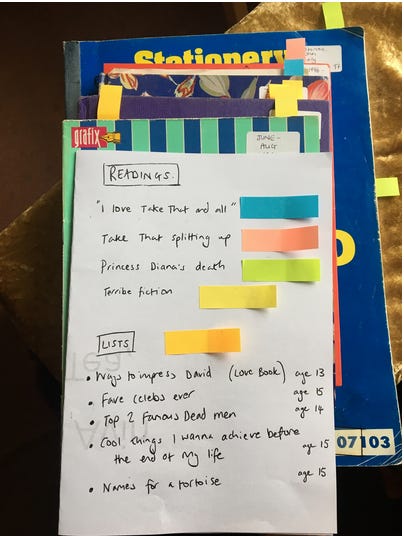 Stationery
grafix
JUNE-
AUG
READINGS.
"I love Take That and all"
Take That splitting up
Princess Diana's death
Terribe fiction
LISTS
• Ways to impress David (Love Book) age 13
• Fave celebs ever age 15
• Top 2 Famous Dead men age 14
• Cool things I wanna achieve before age 15
the end of my life
• Names for a tortoise age 15
07103